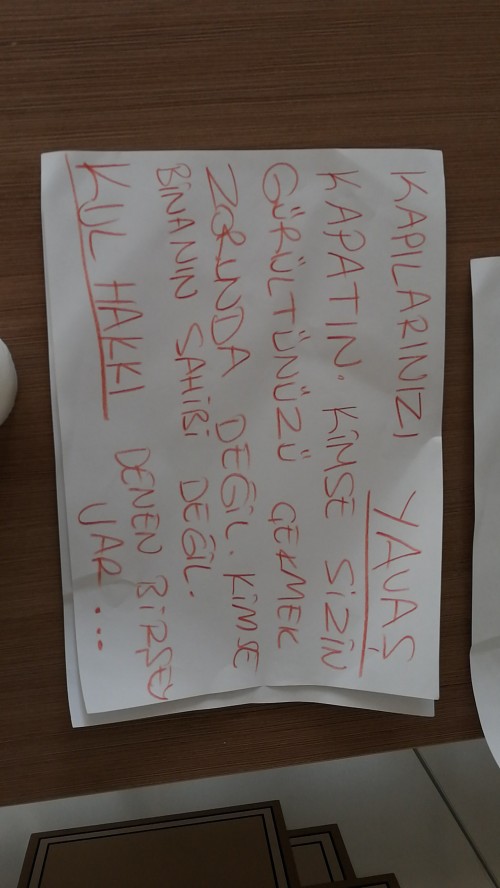 KAPILARINIZI YAVAŞ
KAPATIN. KİMSE SİZİN
GÜRÜLTÜNÜZÜ ÇEKMEK
ZORUNDA DEĞİL. KİMSE
BİNANIN SAHİBİ DEĞİL.
KUL HAKKI DENEN BİRŞEY
VAR...